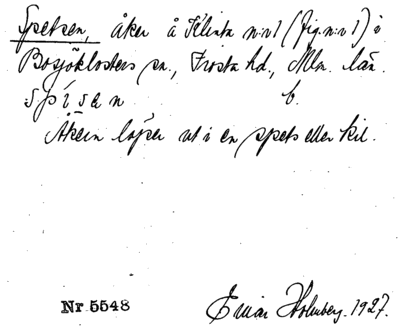 Spetsen, åker å Klinta n:o 1 (fig. n:o 1) i
Bosjöklosters sn., Frosta hd., Mlm. län.
spísan b.
Åkern löper ut i en spets eller kil.
Nr 5548 Einar Holmberg. 1927.